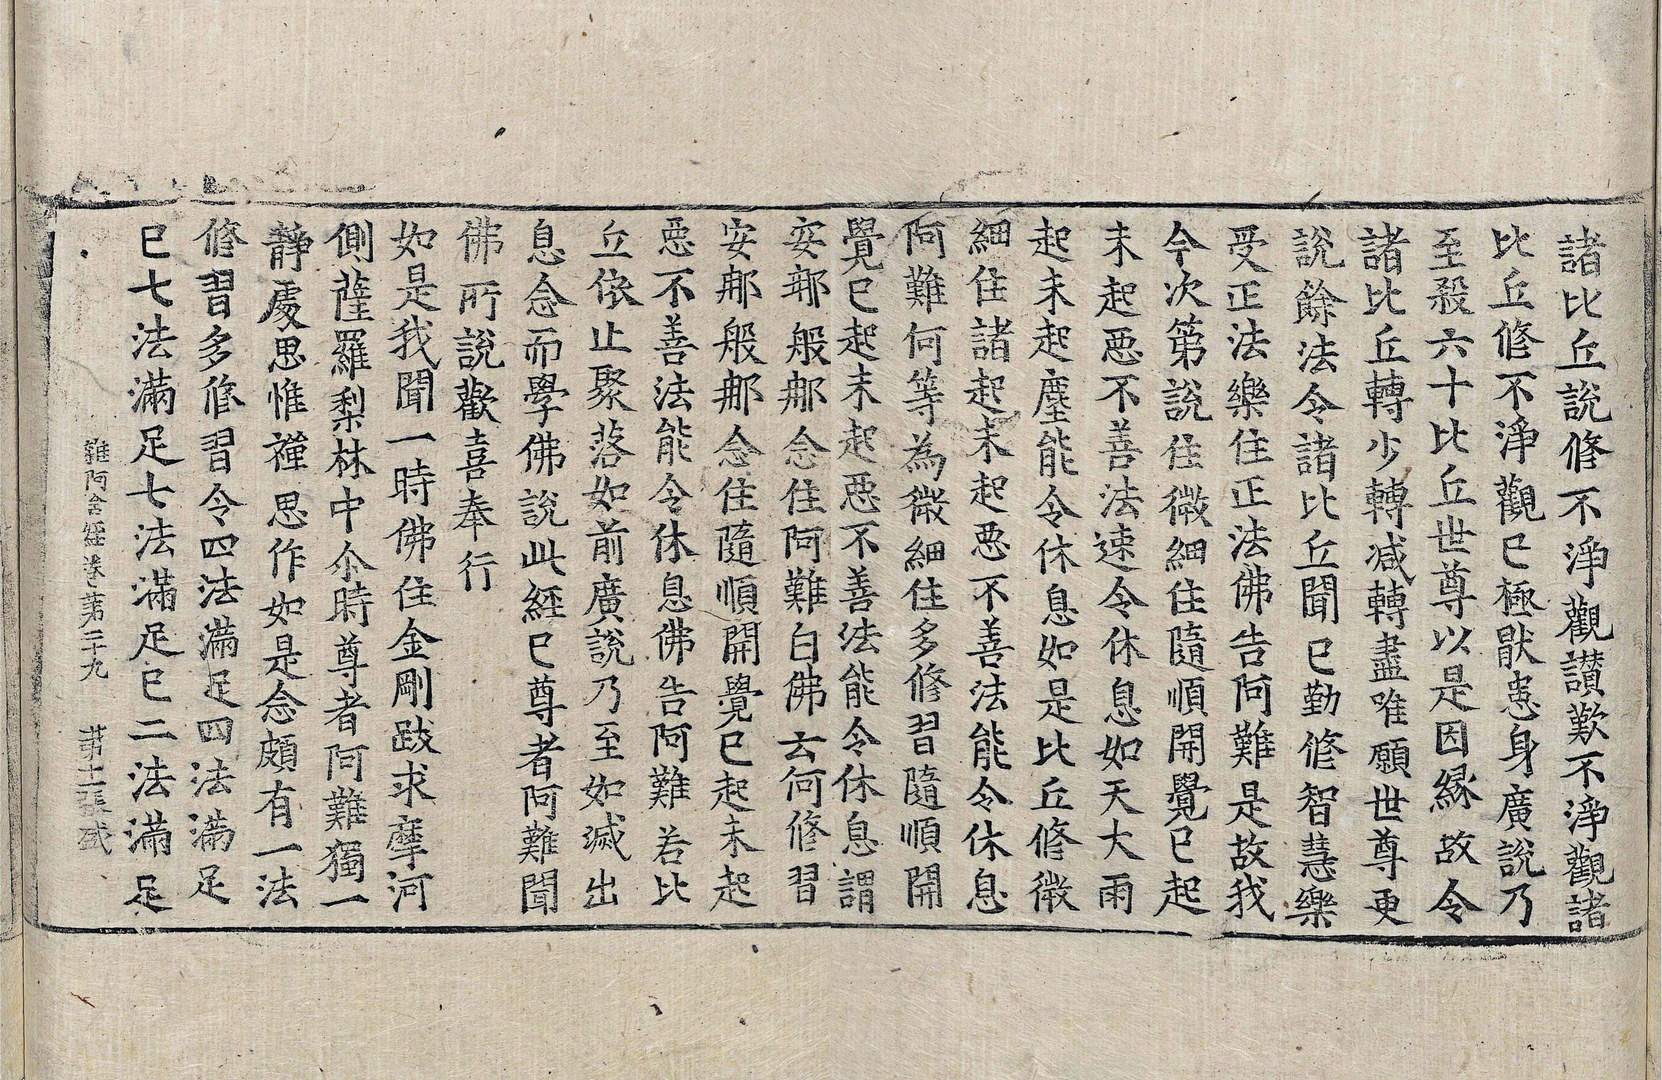 諸比丘說修不淨觀讃歎不淨觀諸
比丘修不淨觀已極猒患身廣說乃
至殺六十比丘世尊以是因緣故令
諸比丘轉少轉減轉盡唯願世尊更
說餘法令諸比丘聞已勤修智慧樂
受正法樂住正法佛告阿難是故我
今次第說住微細住隨順開覺已起
未起惡不善法速令休息如天大雨
起未起塵能令休息如是比丘修微
細住諸起未起惡不善法能令休息
阿難何等為微細住多修習隨順開
覺已起未起惡不善法能令休息謂
安那般那念住阿難白佛云何修習
安那般那念住隨順開覺已起未起
惡不善法能令休息佛告阿難若比
丘依止聚落如前廣說乃至如滅出
息念而學佛說此經已尊者阿難聞
佛所說歡喜奉行
如是我聞一時佛住金剛跋求摩河
側薩羅梨林中尒時尊者阿難獨一
靜處思惟禪思作如是念頗有一法
修習多修習令四法滿足四法滿足
已七法滿足七法滿足已二法滿足
雜阿含經卷第二十九 第十二張 盛